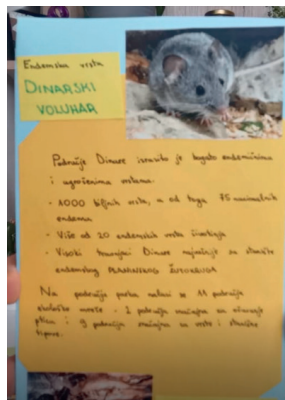 Endemska vrsta
DINARSKI
VOLUHAR
Područje Dinare izrazito je bogato endemičnim
i ugroženim vrstama.
- 1000 biljnih vrsta, a od toga 75
endema
- Više od 20 endemskih vrsta životinja
- Visoki travnjaci Dinare najvažnije su stanište
endemskog PLANINSKOG ŽUTOKRUGA
Na području parka nalazi se 11 područja
ekološke mreže - 2 područja značajna za očuvanje
ptica i 9 područja značajna za vrste i stanišne
tipove.